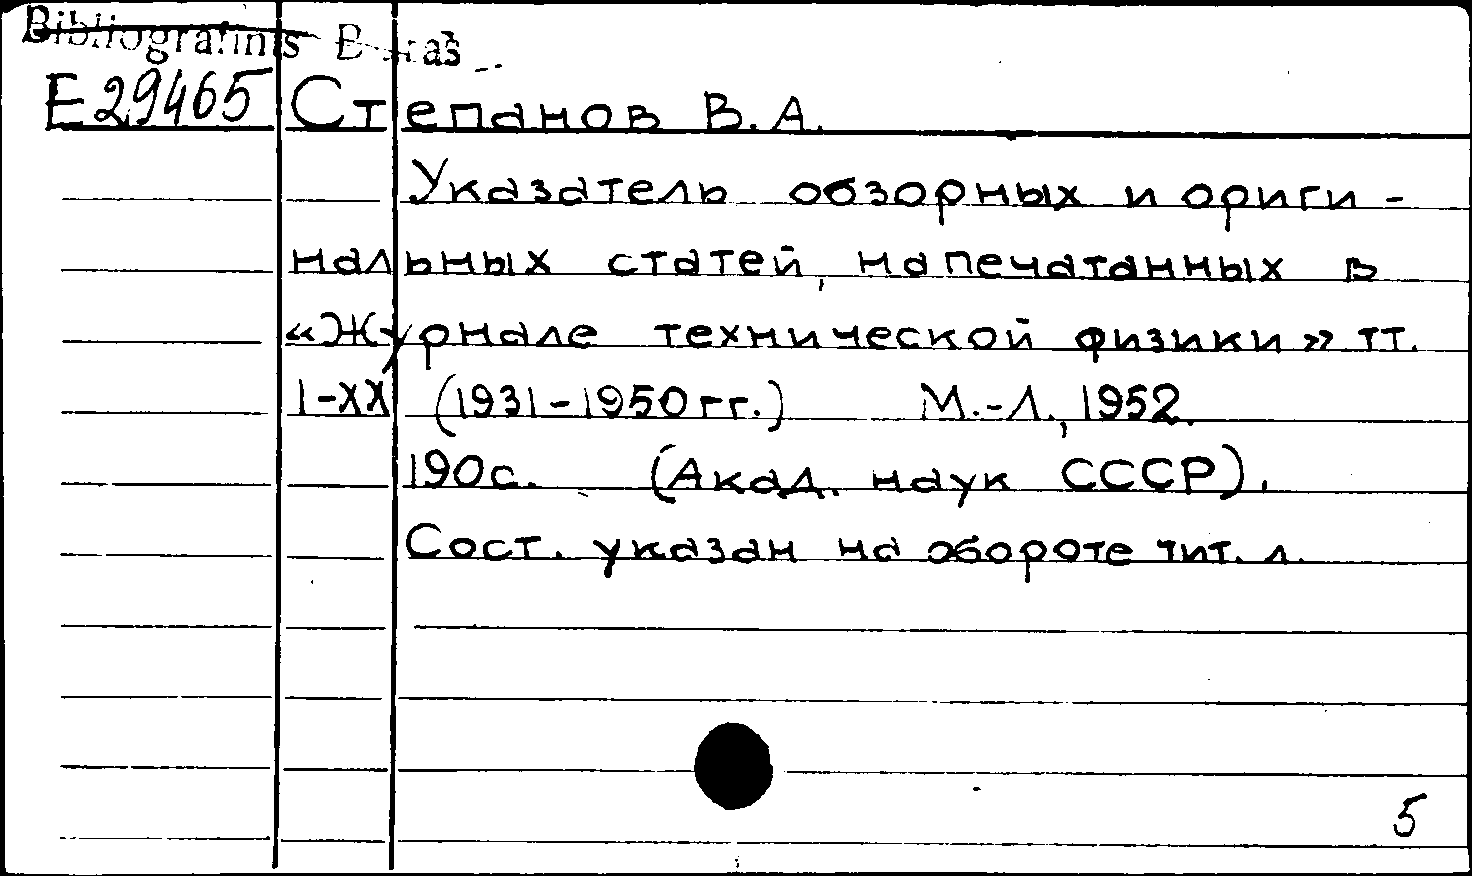 Bibliografinis
Е29465 Степанов В.А.
Указатель обзорных и ориги-
нальных статей, напечатанных в
«Журнале технической физики» тт.
I-XX (1931-1950 гг.) М.-Л., 1952.
190с. (Акад. наук СССР).
Сост. указан на обороте тит. л.
5